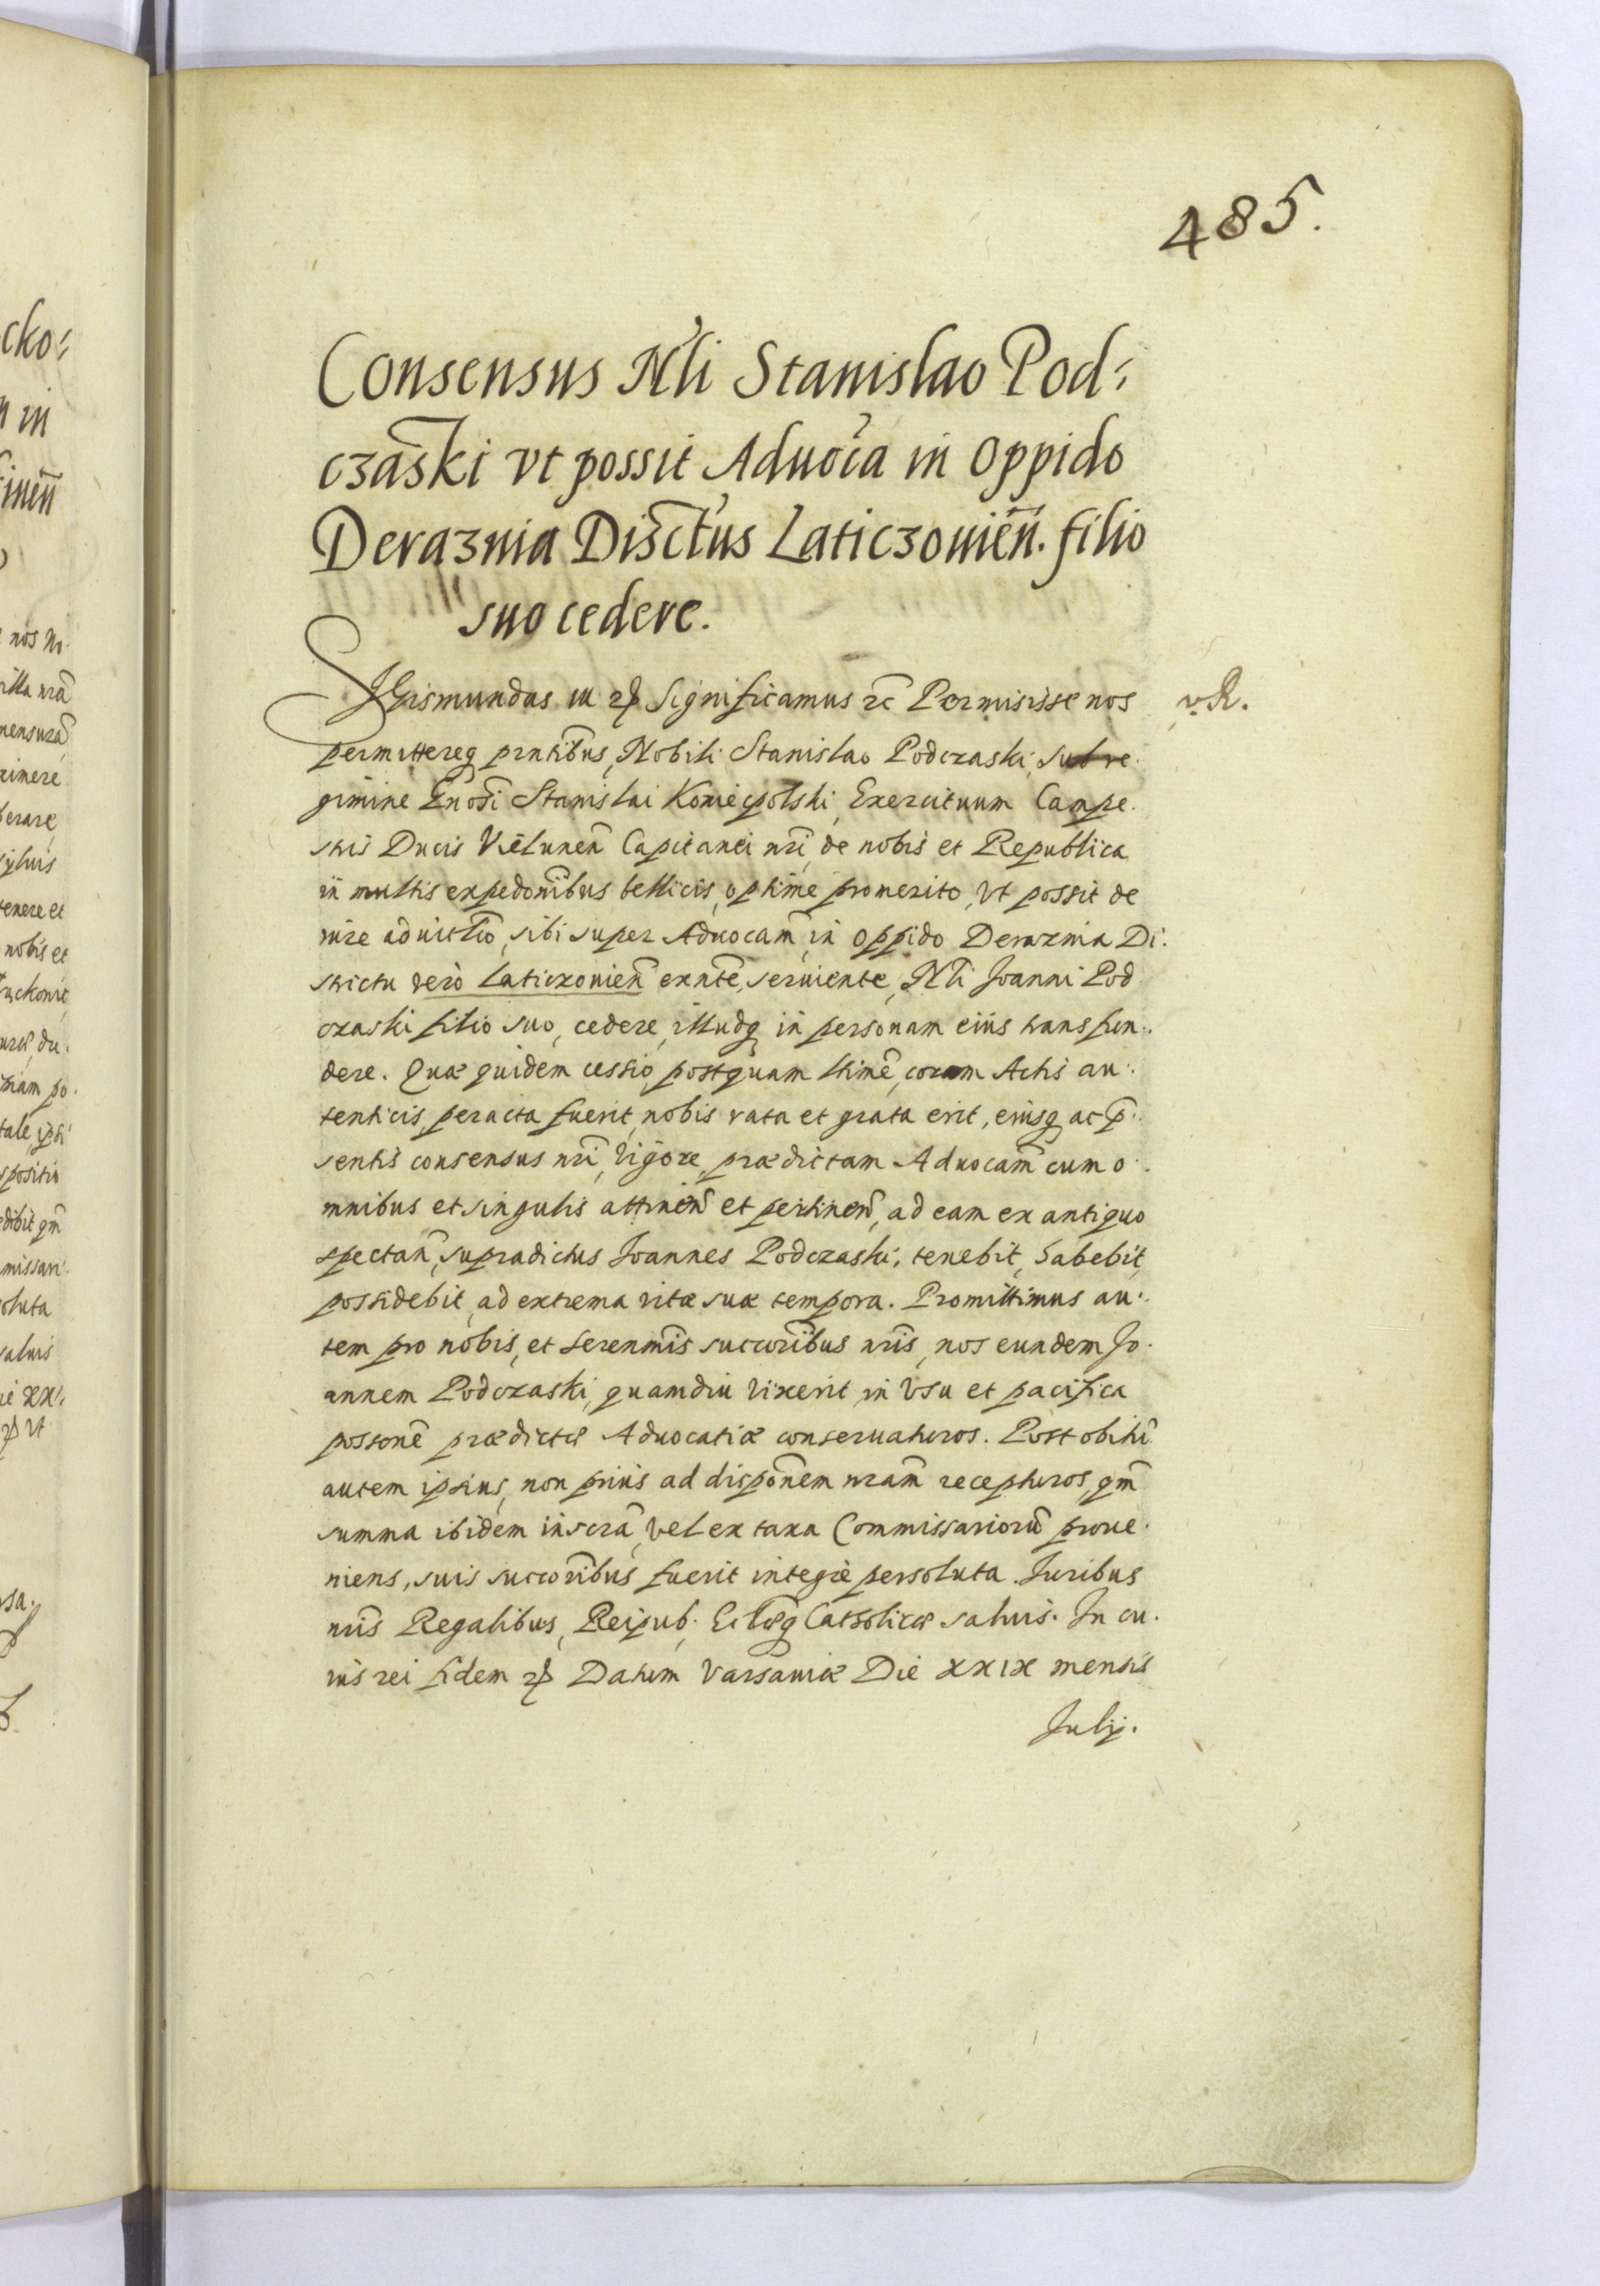 485.
Consensus Nli Stanislao Pod⸗
czaski vt possit Aduocia in Oppido
Deraznia Disctus Laticzouien. filio
suo cedere.
SIgismundus III etc Significamus etc Permisisse nos
v.R.
permittereq pntibus, Nobili Stanislao Podczaski, sub re
gimine Gnosi Stanislai Koniecpolski, Exercituum Campe
stris Ducis Vielunen Capitanei nri, de nobis et Republica
in multis expedonibus bellicis, optime promerito, Vt possit de
iure aduitlio, sibi super Aduocam in Oppido Deraznia Di
strictu vero Laticzouien exnte, seruiente, Nli Joanni Pod
czaski filio suo, cedere, illudq in personam eius transfun
dere. Quæ quidem cessio, postquam ltime, coram Actis au
tenticis, peracta fuerit, nobis rata et grata erit, eiusq ac p
sentis consensus nri, vigore, prædictam Aduocam cum o
mnibus et singulis attinen et pertinen, ad eam ex antiquo
spectan, supradictus Joannes Podczaski, tenebit, habebit,
possidebit, ad extrema vitæ suæ tempora. Promittimus au
tem pro nobis, et Serenmis succoribus nris, nos eundem Jo
annem Podczaski, quamdiu vixerit, in Vsu et pacifica
possone prædictæ Aduocatiæ conseruaturos. Post obitu
autem ipsius, non prius ad disponem nram recepturos, qm
summa ibidem inscra, vel ex taxa Commissarioru proue
niens, suis succoribus fuerit integre persoluta. Juribus
nris Regalibus, Reipub. Ecclæq Catholicæ saluis. In cu
ius rei fidem etc Datum Varsauiæ Die XXIX mensis
Julij.
cko⸗
n in
inen
nos No
illa nra
mensura
tinere
syluis
tenere et
nobis et
niam po
tale, ipsi
spositio
dibit qm
missari
oluta
saluis